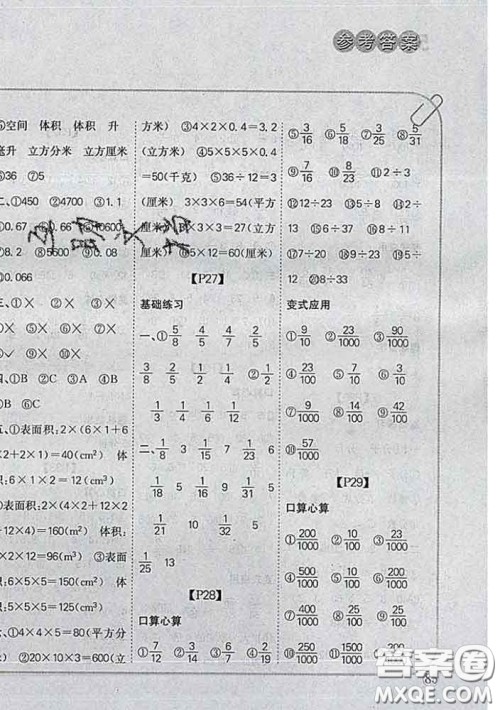 参考答案
⑤空间 体积 体积 升
毫升 立方分米 立方厘米
⑥36 ⑦5
二、①450 ②4700 ③1.1
④0.67 ⑤0.66 ⑥40600
⑦8.2 ⑧5600 ⑨0.08
⑩0.066
三、①× ②× ③×
④× ⑤× ⑥×
⑨× ⑩×
四、①B ②C ③A ④B
⑤B ⑥C
五、①表面积:2×(6×1+6
×2+2×1)=40(cm²) 体积:
6×1×2=12(cm³) ②表面
积:2×(4×2+12×2
+12×4)=160(m²) 体积:
4×2×12=96(m³) ③表面
积:6×5×5=150(cm²) 体
积:5×5×5=125(cm³)
六、①4×4×5=80(平方分
米) ②20×10×3=600(立
方米) ③4×2×0.4=3.2
(立方米) ④5×5×5×0.4
=50(千克) ⑤36÷12=3
(厘米) 3×3×6=54(平方
厘米) 3×3×3=27(立方
厘米) ⑥5×12=60(厘米)
【P27】
基础练习
一、①5/8 4/5 4/7 2/5
3/8 2/5 1/4 ②1/2
1/3 1/4 1/6 1/9
二、1/8 3 1/15 7 1/23
1/18 5 1/9 5 1/31
1/21 10 1/10 5
1/25 13
【P28】
口算心算
①7/12 ②3/14 ③6/7 ④2/9
⑤3/16 ⑥5/18 ⑦3/25 ⑧5/31
⑨7/16 ⑩8/13 ⑪2÷3
⑫12÷23 ⑬5÷12
⑭8÷15 ⑮12÷33
⑯11÷12 ⑰9÷13
⑱7÷20 ⑲9÷16
⑳8÷33
变式应用
①9/10 ②23/1000 ③90/1000
④23/100 ⑤7/10 ⑥3/10
⑦9/1000 ⑧14/100 ⑨42/100
⑩57/1000
【P29】
口算心算
①200/1000 ②10/100 ③23/1000
④250/1000 ⑤57/100 ⑥375/1000
⑦750/1000 ⑧25/100 ⑨25/1000
⑩250/1000 ⑪1500/1000
答案圈
MXQE.COM